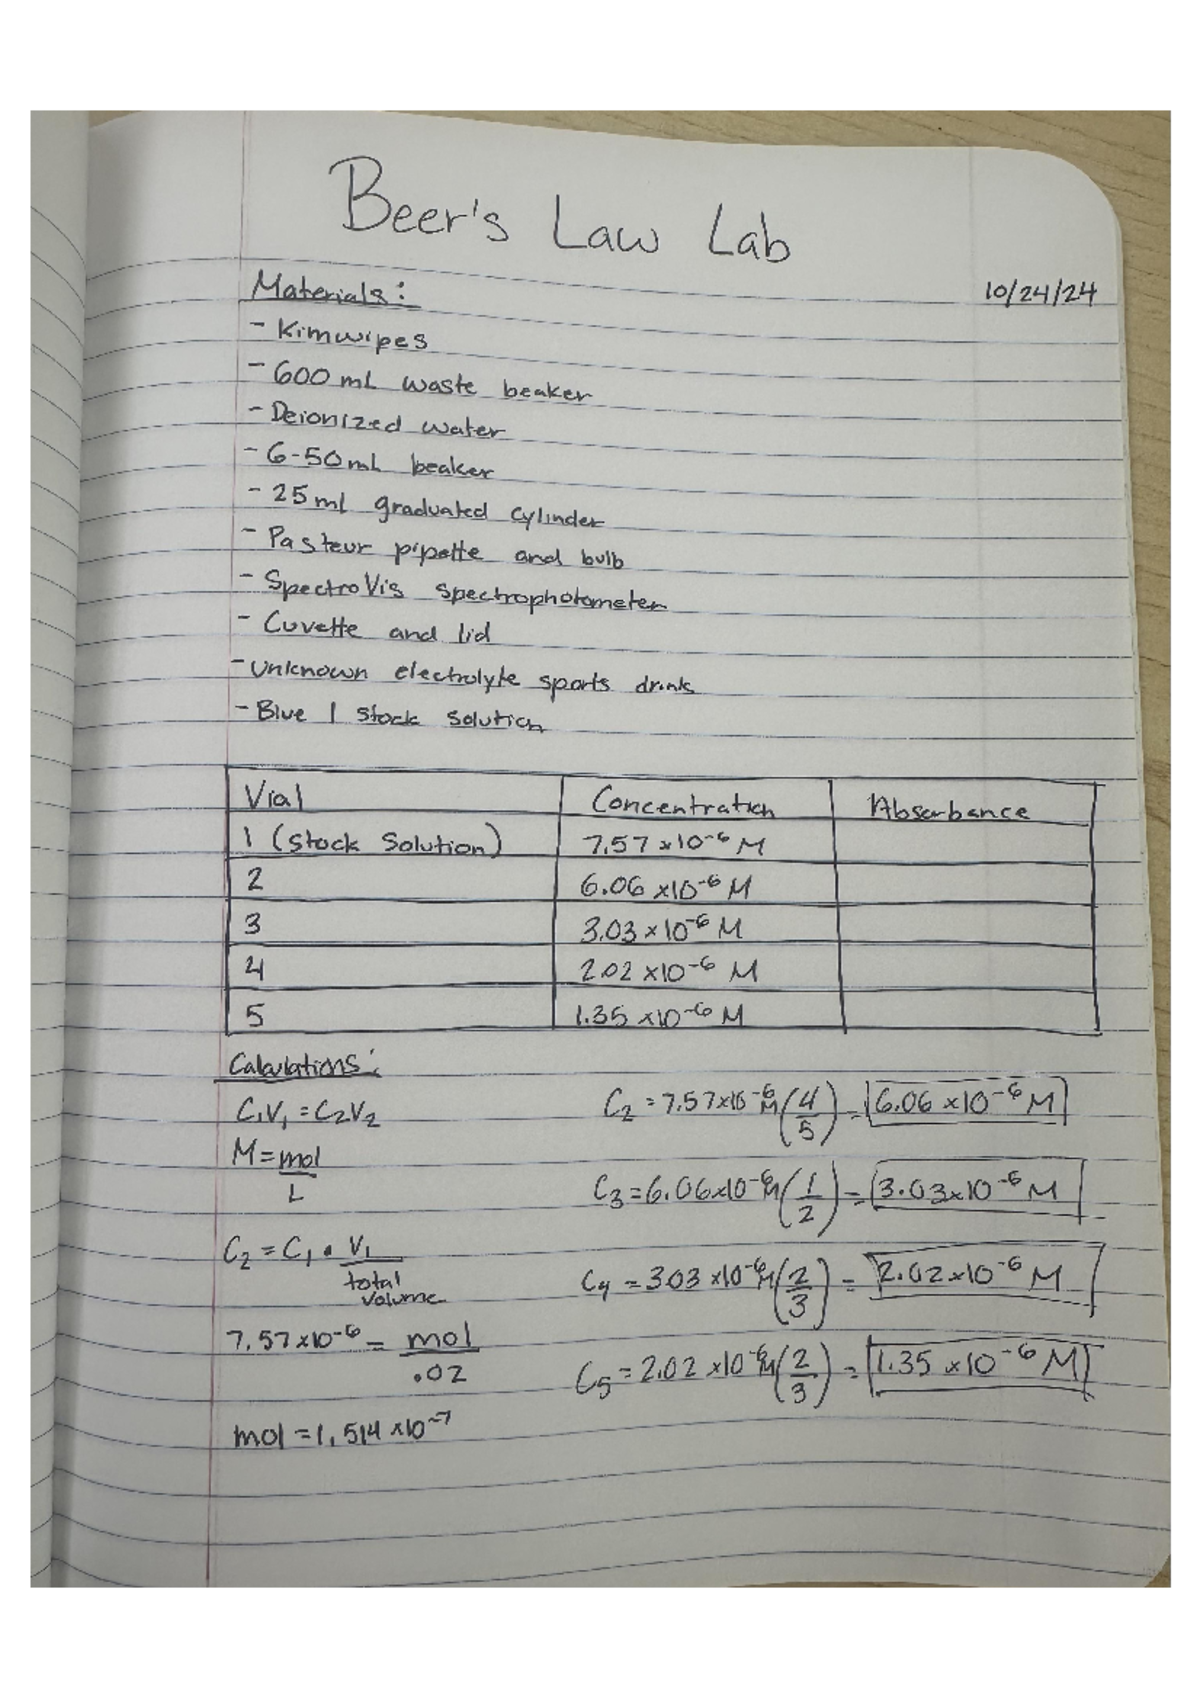 Beer's Law Lab
Materials:
10/24/24
- Kimwipes
- 600 mL waste beaker
- Deionized water
- 6-50mL beaker
- 25ml graduated cylinder
- Pasteur pipette and bulb
- SpectroVis spectrophotometer
- Cuvette and lid
- Unknown electrolyte sports drink
- Blue 1 stock solution
Vial Concentration Absorbance
1 (Stock Solution) 7.57 x10⁻⁶ M
2 6.06 x10⁻⁶ M
3 3.03 x10⁻⁶ M
4 2.02 x10⁻⁶ M
5 1.35 x10⁻⁶ M
Calculations:
C₁V₁ = C₂V₂
M = mol
L
C₂ = C₁ • V₁
total
volume
7.57x10⁻⁶ = mol
.02
mol = 1.514 x10⁻⁷
C₂ = 7.57x10⁻⁶ M (4/5) = 6.06 x10⁻⁶ M
C₃ = 6.06x10⁻⁶ M (1/2) = 3.03x10⁻⁶ M
C₄ = 3.03 x10⁻⁶ M (2/3) = 2.02x10⁻⁶ M
C₅ = 2.02 x10⁻⁶ M (2/3) = 1.35 x10⁻⁶ M